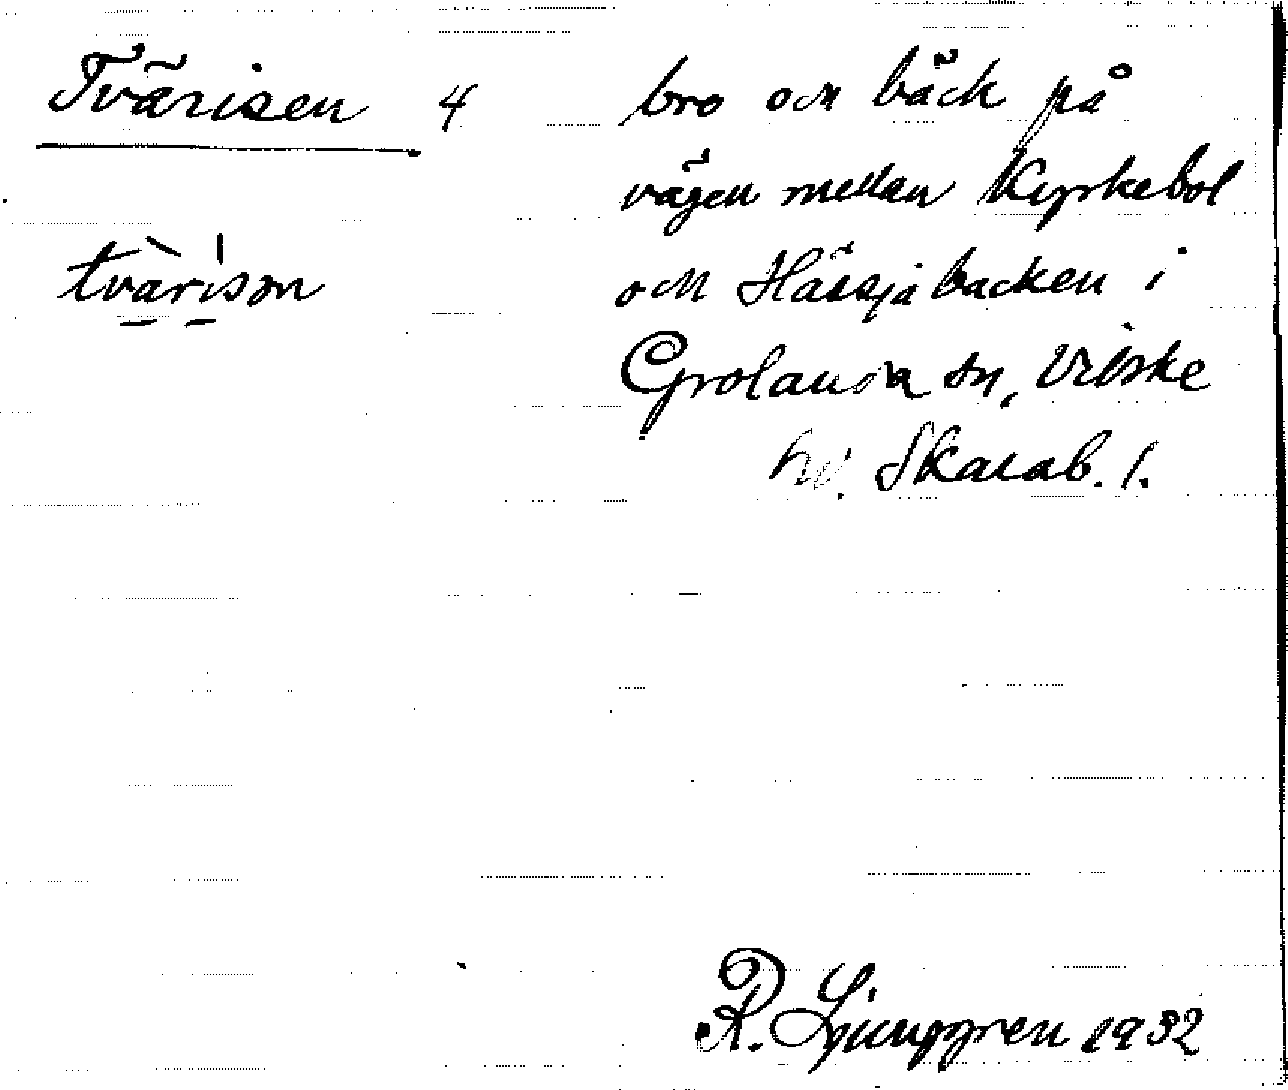 Tvärisen 4
tvàrisən
bro och bäck på
vägen mellan Kyrkebol
och Hässjabacken i
Grolanda sn, Vilske
hd. Skarab. l.
R. Ljunggren 1932